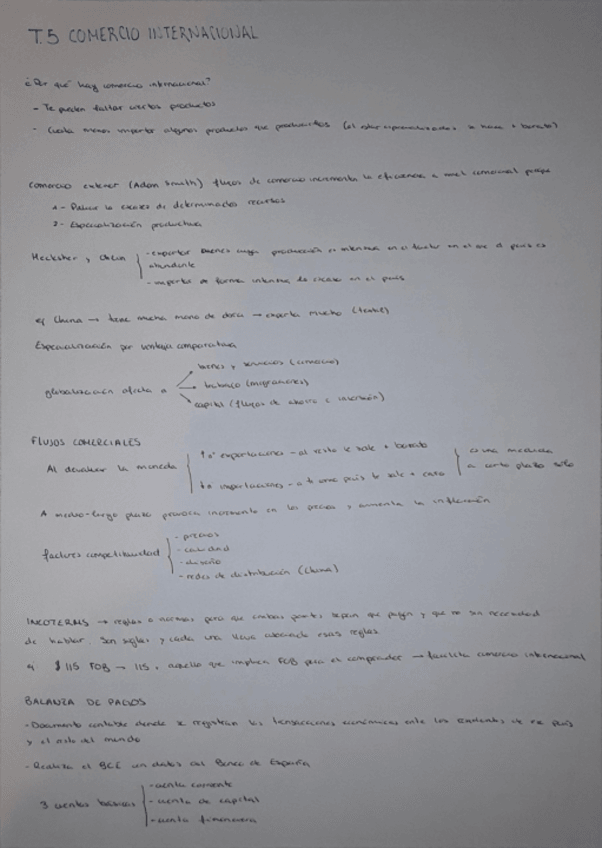 T.5 COMERCIO INTERNACIONAL
¿Por qué hay comercio internacional?
- Te pueden faltar ciertos productos
- Cuesta menos importar algunos productos que producirlos (al estar especializados se hace + barato)
Comercio exterior (Adam Smith) flujos de comercio incrementa la eficiencia a nivel comercial porque
1 - Paliar la escasez de determinados recursos
2 - Especialización productiva
Heckscher y Ohlin
- exportar bienes cuya producción es intensiva en el factor en el que el país es
abundante
- importa de forma intensiva lo escaso en el país
ej China → tiene mucha mano de obra → exporta mucho (textil)
Especialización por ventaja comparativa
globalización afecta a
bienes y servicios (comercio)
trabajo (migraciones)
capital (flujos de ahorro e inversión)
FLUJOS COMERCIALES
Al devaluar la moneda
exportaciones - al resto le sale + barato
importaciones - a ti como país te sale + caro
como medida
a corto plazo sólo
A medio-largo plazo provoca incremento en los precios y aumenta la inflación
factores competitividad
- precios
- calidad
- diseño
- redes de distribución (China)
INCOTERMS → reglas o normas para que ambas partes sepan que pagan y que no sin necesidad
de hablar. Son siglas y cada una lleva asociado esas reglas.
ej $115 FOB → 115, aquello que implica FOB para el comprador → facilita comercio internacional
BALANZA DE PAGOS
- Documento contable donde se registran las transacciones económicas entre los residentes de un país
y el resto del mundo
- Realiza el BCE con datos del Banco de España
3 cuentas básicas
- cuenta corriente
- cuenta de capital
- cuenta financiera